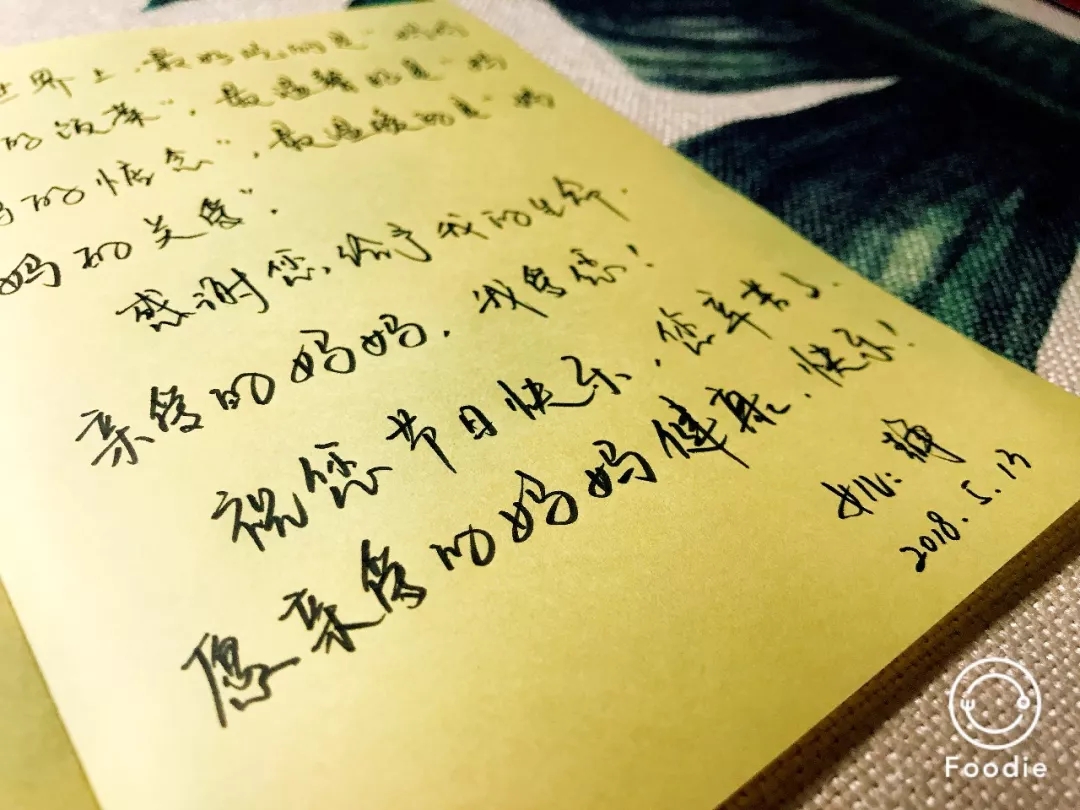 世界上,最好吃的是"妈妈
的饭菜",最温馨的是"妈
妈的惦念",最温暖的是"妈
妈的关爱".
感谢您,给予我的生命.
亲爱的妈妈,我爱您!
祝您节日快乐,您辛苦了.
愿亲爱的妈妈健康、快乐!
女儿:静
2018.5.13
Foodie